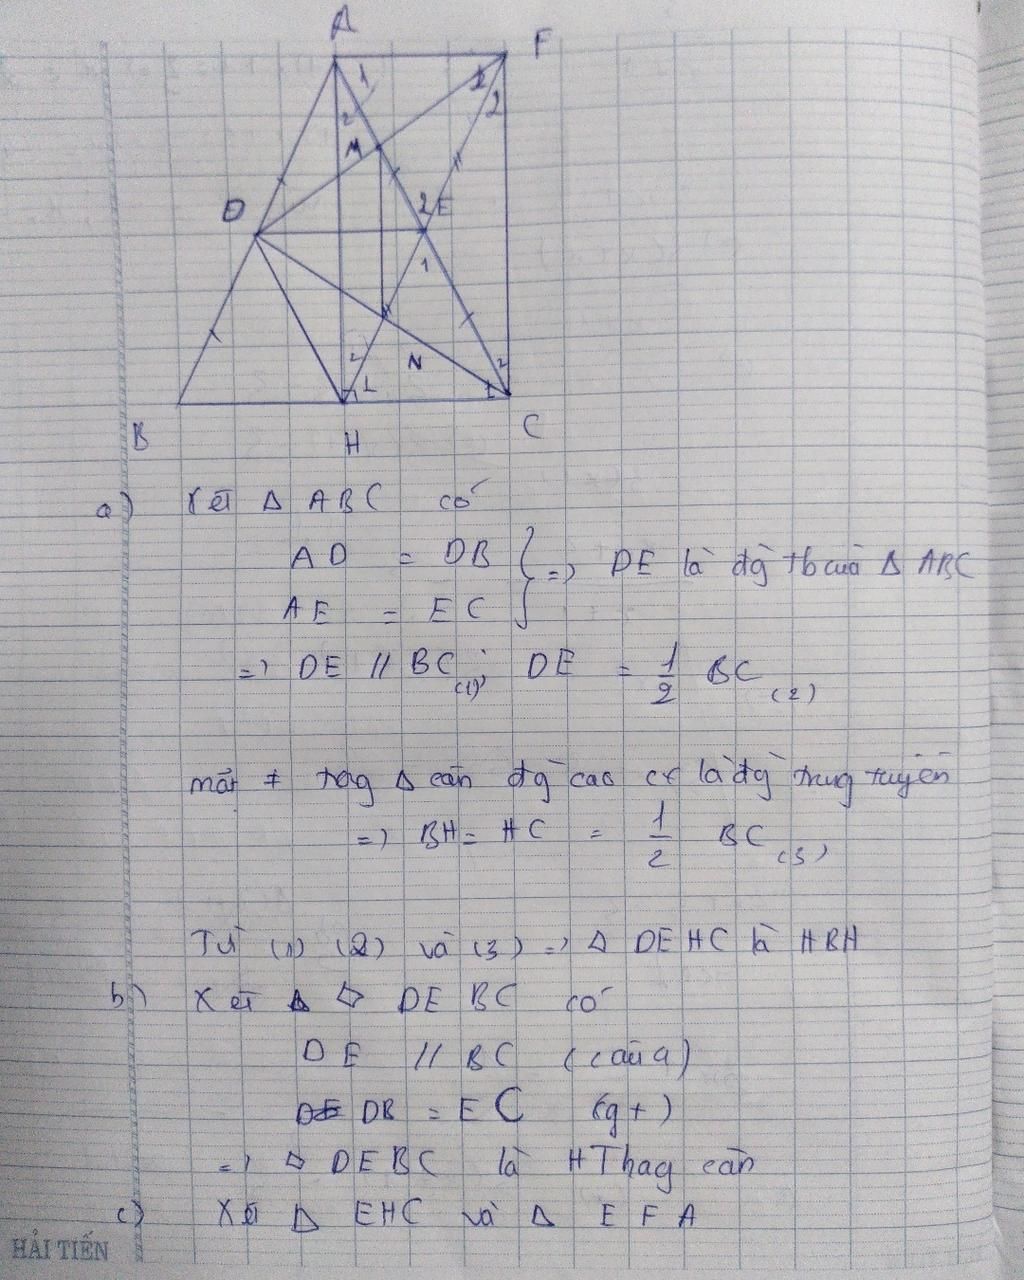 A
F
1
1
2
2
M
D
2 E
1
2
N
2
1
1
B
H
C
a) Xét Δ ABC có
AD = DB } => DE là đg tb của Δ ABC
AE = EC
=> DE // BC (1); DE = 1/2 BC (2)
mặt ≠ trog Δ cân đg cao cx là đg trung tuyến
=> BH = HC = 1/2 BC (3)
Từ (1) (2) và (3) => DEHC là HBH
b) Xét DEBC có
DE // BC (câu a)
DB = EC (gt)
=> DEBC là HThag cân
c) Xét Δ EHC và Δ EFA
HẢI TIẾN